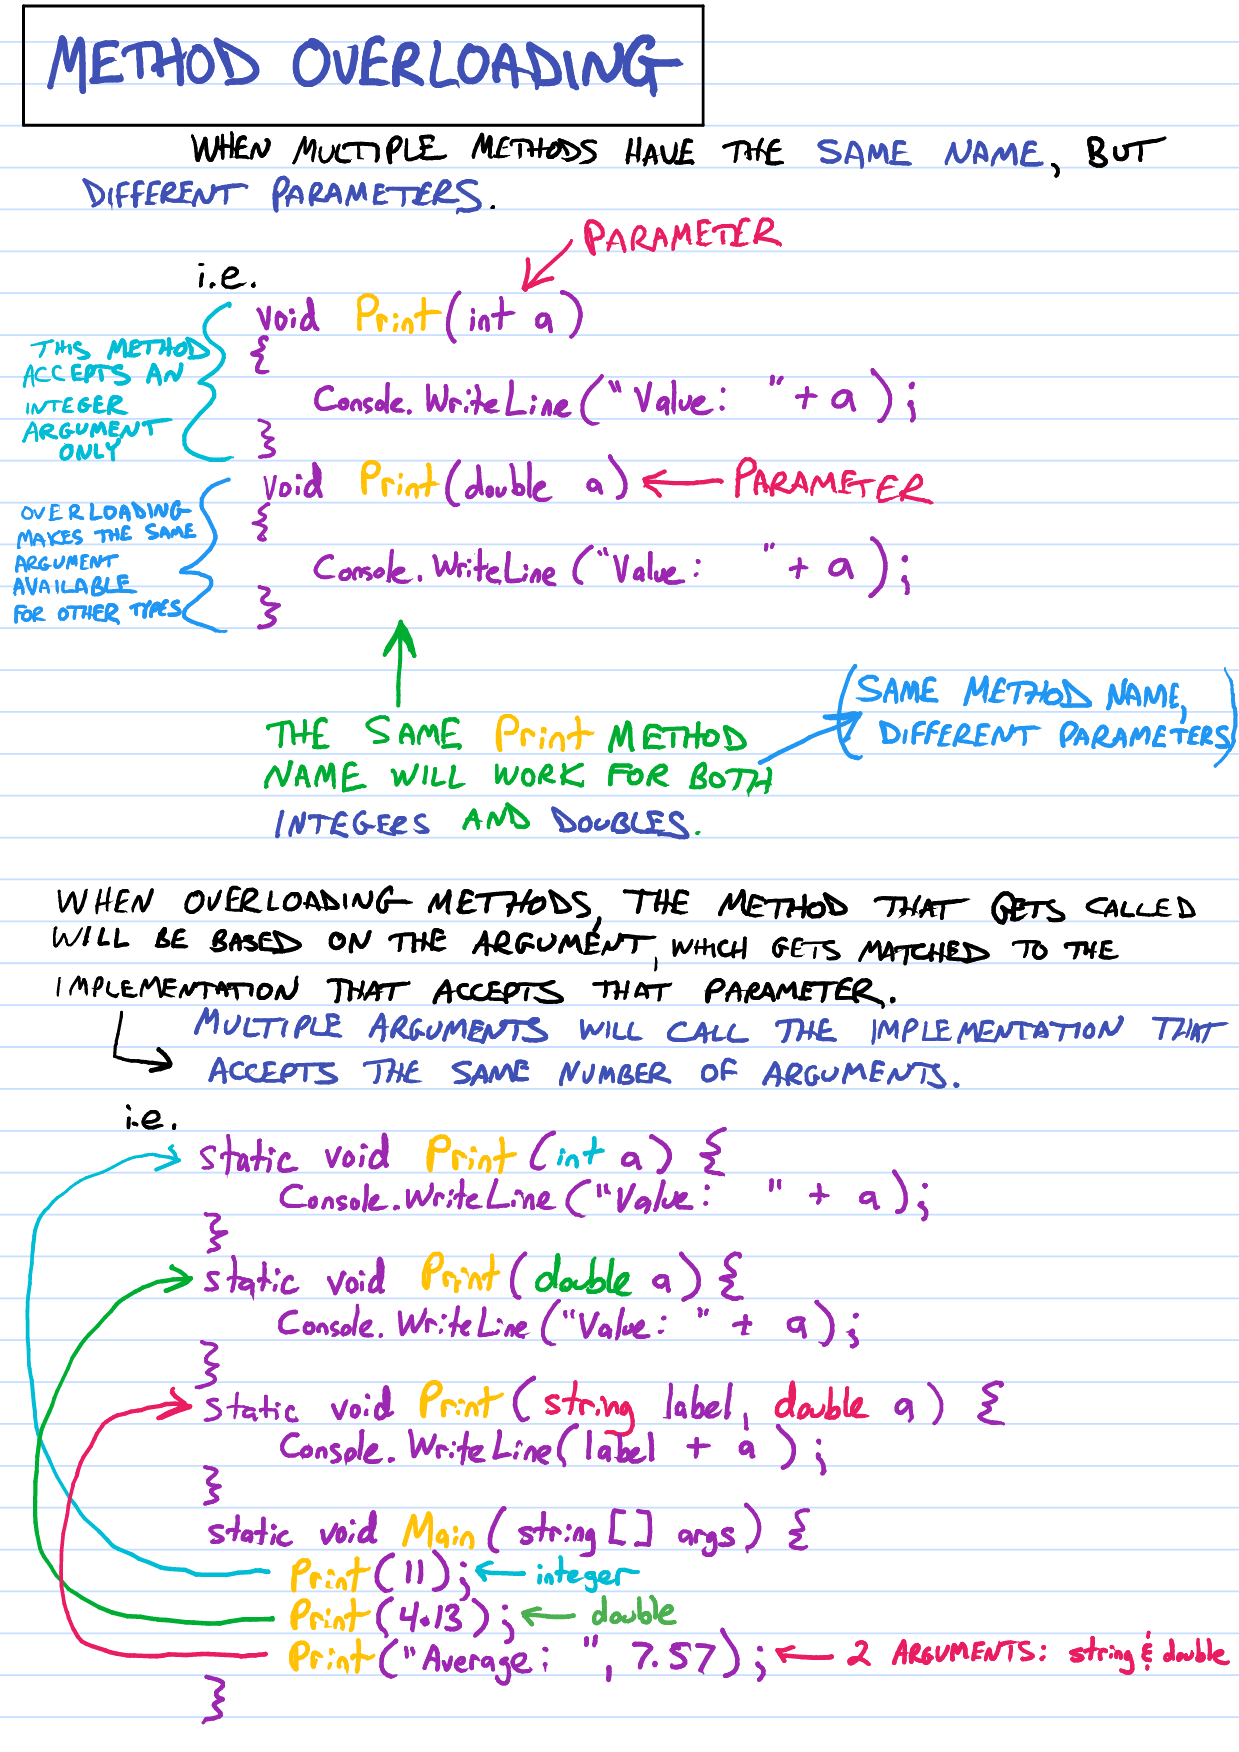 METHOD OVERLOADING
WHEN MULTIPLE METHODS HAVE THE SAME NAME, BUT
DIFFERENT PARAMETERS.
PARAMETER
i.e.
void Print(int a)
{
Console.WriteLine("Value: "+ a);
}
THIS METHOD
ACCEPTS AN
INTEGER
ARGUMENT
ONLY
void Print(double a) PARAMETER
{
Console.WriteLine("Value: "+ a);
}
OVERLOADING
MAKES THE SAME
ARGUMENT
AVAILABLE
FOR OTHER TYPES
THE SAME Print METHOD
NAME WILL WORK FOR BOTH
INTEGERS AND DOUBLES.
(SAME METHOD NAME,
DIFFERENT PARAMETERS)
WHEN OVERLOADING METHODS, THE METHOD THAT GETS CALLED
WILL BE BASED ON THE ARGUMENT, WHICH GETS MATCHED TO THE
IMPLEMENTATION THAT ACCEPTS THAT PARAMETER.
MULTIPLE ARGUMENTS WILL CALL THE IMPLEMENTATION THAT
ACCEPTS THE SAME NUMBER OF ARGUMENTS.
i.e.
static void Print(int a) {
Console.WriteLine("Value: " + a);
}
static void Print(double a) {
Console.WriteLine("Value: " + a);
}
static void Print(string label, double a) {
Console.WriteLine(label + a);
}
static void Main(string[] args) {
Print(11); integer
Print(4.13); double
Print("Average: ", 7.57); 2 ARGUMENTS: string & double
}